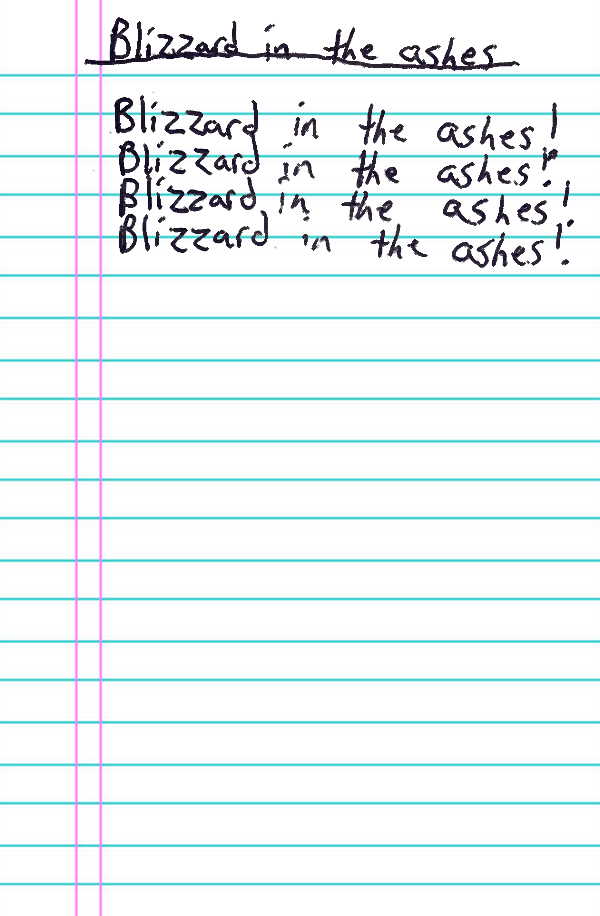 Blizzard in the ashes
Blizzard in the ashes!
Blizzard in the ashes!
Blizzard in the ashes!
Blizzard in the ashes!